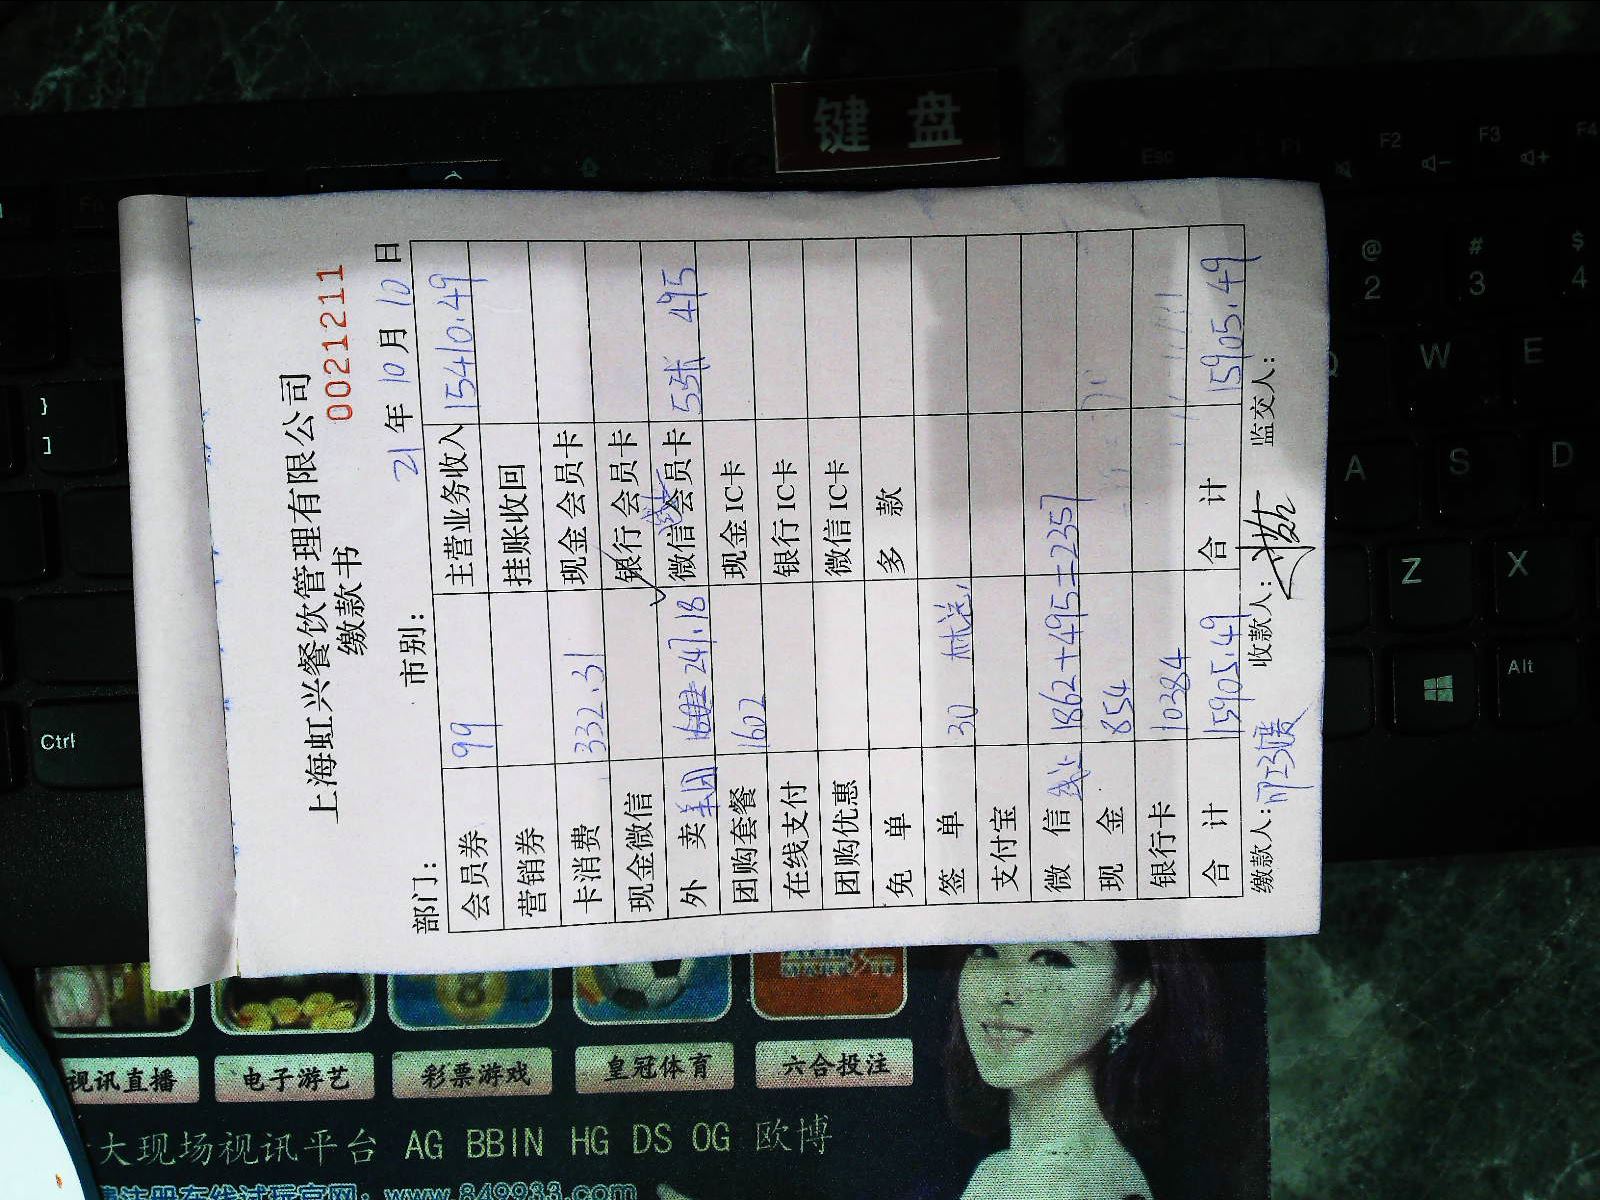 键 盘
上海虹兴餐饮管理有限公司
缴款书
0021211
部门： 市别： 21 年 10 月 10 日
会员券 99 主营业务收入 15410.49
营销券 挂账收回
卡消费 332.31 现金会员卡
现金微信 银行会员卡
外 卖 美团 247.18 微信会员卡 5张 495
团购套餐 1602 现金IC卡
在线支付 银行IC卡
团购优惠 微信IC卡
免 单 多 款
签 单 30
支付宝
微 信 线上 1862+495=2357
现 金 854
银行卡 10384
合 计 15905.49 合 计 15905.49
缴款人： 收款人： 监交人：
Esc F1 F2 F3 F4
@ 2 # 3 $ 4
Q W E
A S D
Z X
Alt
Ctrl
} ]
视讯直播 电子游艺 彩票游戏 皇冠体育 六合投注
大现场视讯平台 AG BBIN HG DS OG 欧博
注册在线试玩官网：www.849933.com